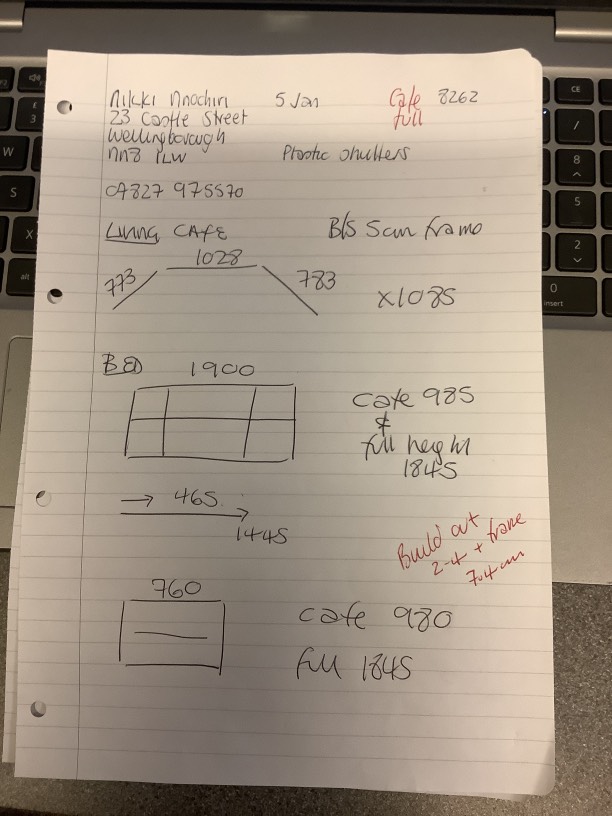 Nikki Nnochiri 5 Jan Cafe 8262
full
23 Castle Street
Wellingborough
NN8 1LW Plastic shutters
07827 975570
Living CAFE B/S 5cm frame
1028
773 783 x1085
BED 1900
cafe 985
&
full height
1845
→ 465
1445
Build out
2.4 + frame
7.4cm
760
cafe 980
full 1845